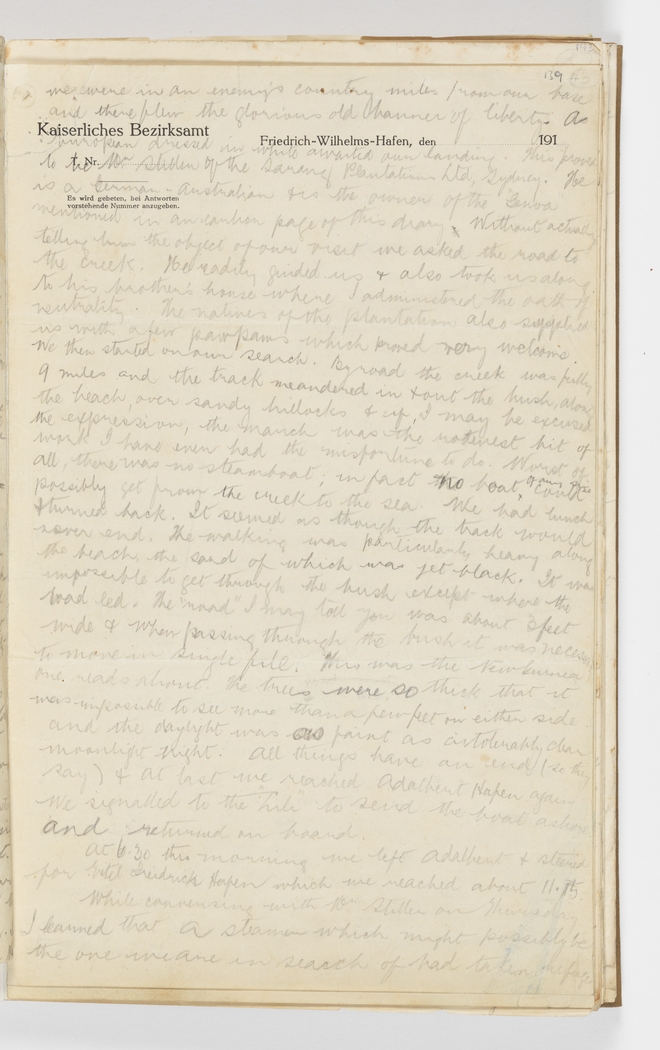 139
we were in an enemy's country miles from our base
and there flew the glorious old banner of liberty. A
Kaiserliches Bezirksamt
Friedrich-Wilhelms-Hafen, den 191
European dressed in white awaited our landing. This proved
J. Nr.
to be Mr Stiller of the Sarang Plantation Ltd, Sydney. He
is a German-Australian & is the owner of the "Genoa
Es wird gebeten, bei Antworten
vorstehende Nummer anzugeben.
mentioned in an earlier page of this diary. Without actually
telling him the object of our visit we asked the road to
the creek. He readily guided us & also took us along
to his brother's house where I administered the oath of
neutrality. The natives of the plantation also supplied
us with a few pawpaws which proved very welcome.
We then started on our search. By road the creek was fully
9 miles and the track meandered in & out the bush, along
the beach, over sandy hillocks & if, I may be excused
the expression, the march was the rottenest bit of
work I have ever had the misfortune to do. Worst of
all, there was no steamboat; in fact no boat, of any size could
possibly get from the creek to the sea. We had lunch
& turned back. It seemed as though the track would
never end. The walking was particularly heavy along
the beach, the sand of which was jet-black. It was
impossible to get through the bush except where the
road led. The "road" I may tell you was about 3 feet
wide & when passing through the bush it was necessary
to move in single file. This was the New Guinea
one reads about. The trees were so thick that it
was impossible to see more than a few feet on either side
and the daylight was as faint as a tolerably clear
moonlight night. All things have an end (so they
say) & at last we reached Adalbert Hafen again
We signalled to the to send the boat ashore
and returned on board.
At 6.30 this morning we left Adalbert & steamed
for Eitel Freidrich Hafen which we reached about 11.15
While conversing with Mr Stiller on Thursday
I learned that a steamer which might possibly be
the one we are in search of had taken refuge